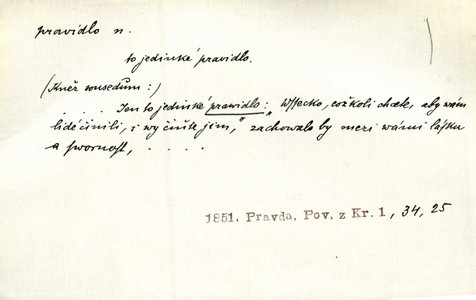 pravidlo n.
to jedinké pravidlo.
(Kněz sousedům:)
. . . . Jen to jedinké prawidlo: „Wssecko, cožkoli chcete, aby wám
lidé činili, i wy čiňte jim,“ zachowalo by mezi wámi lásku
a swornost, . . . .
1851. Pravda, Pov. z Kr. 1, 34, 25